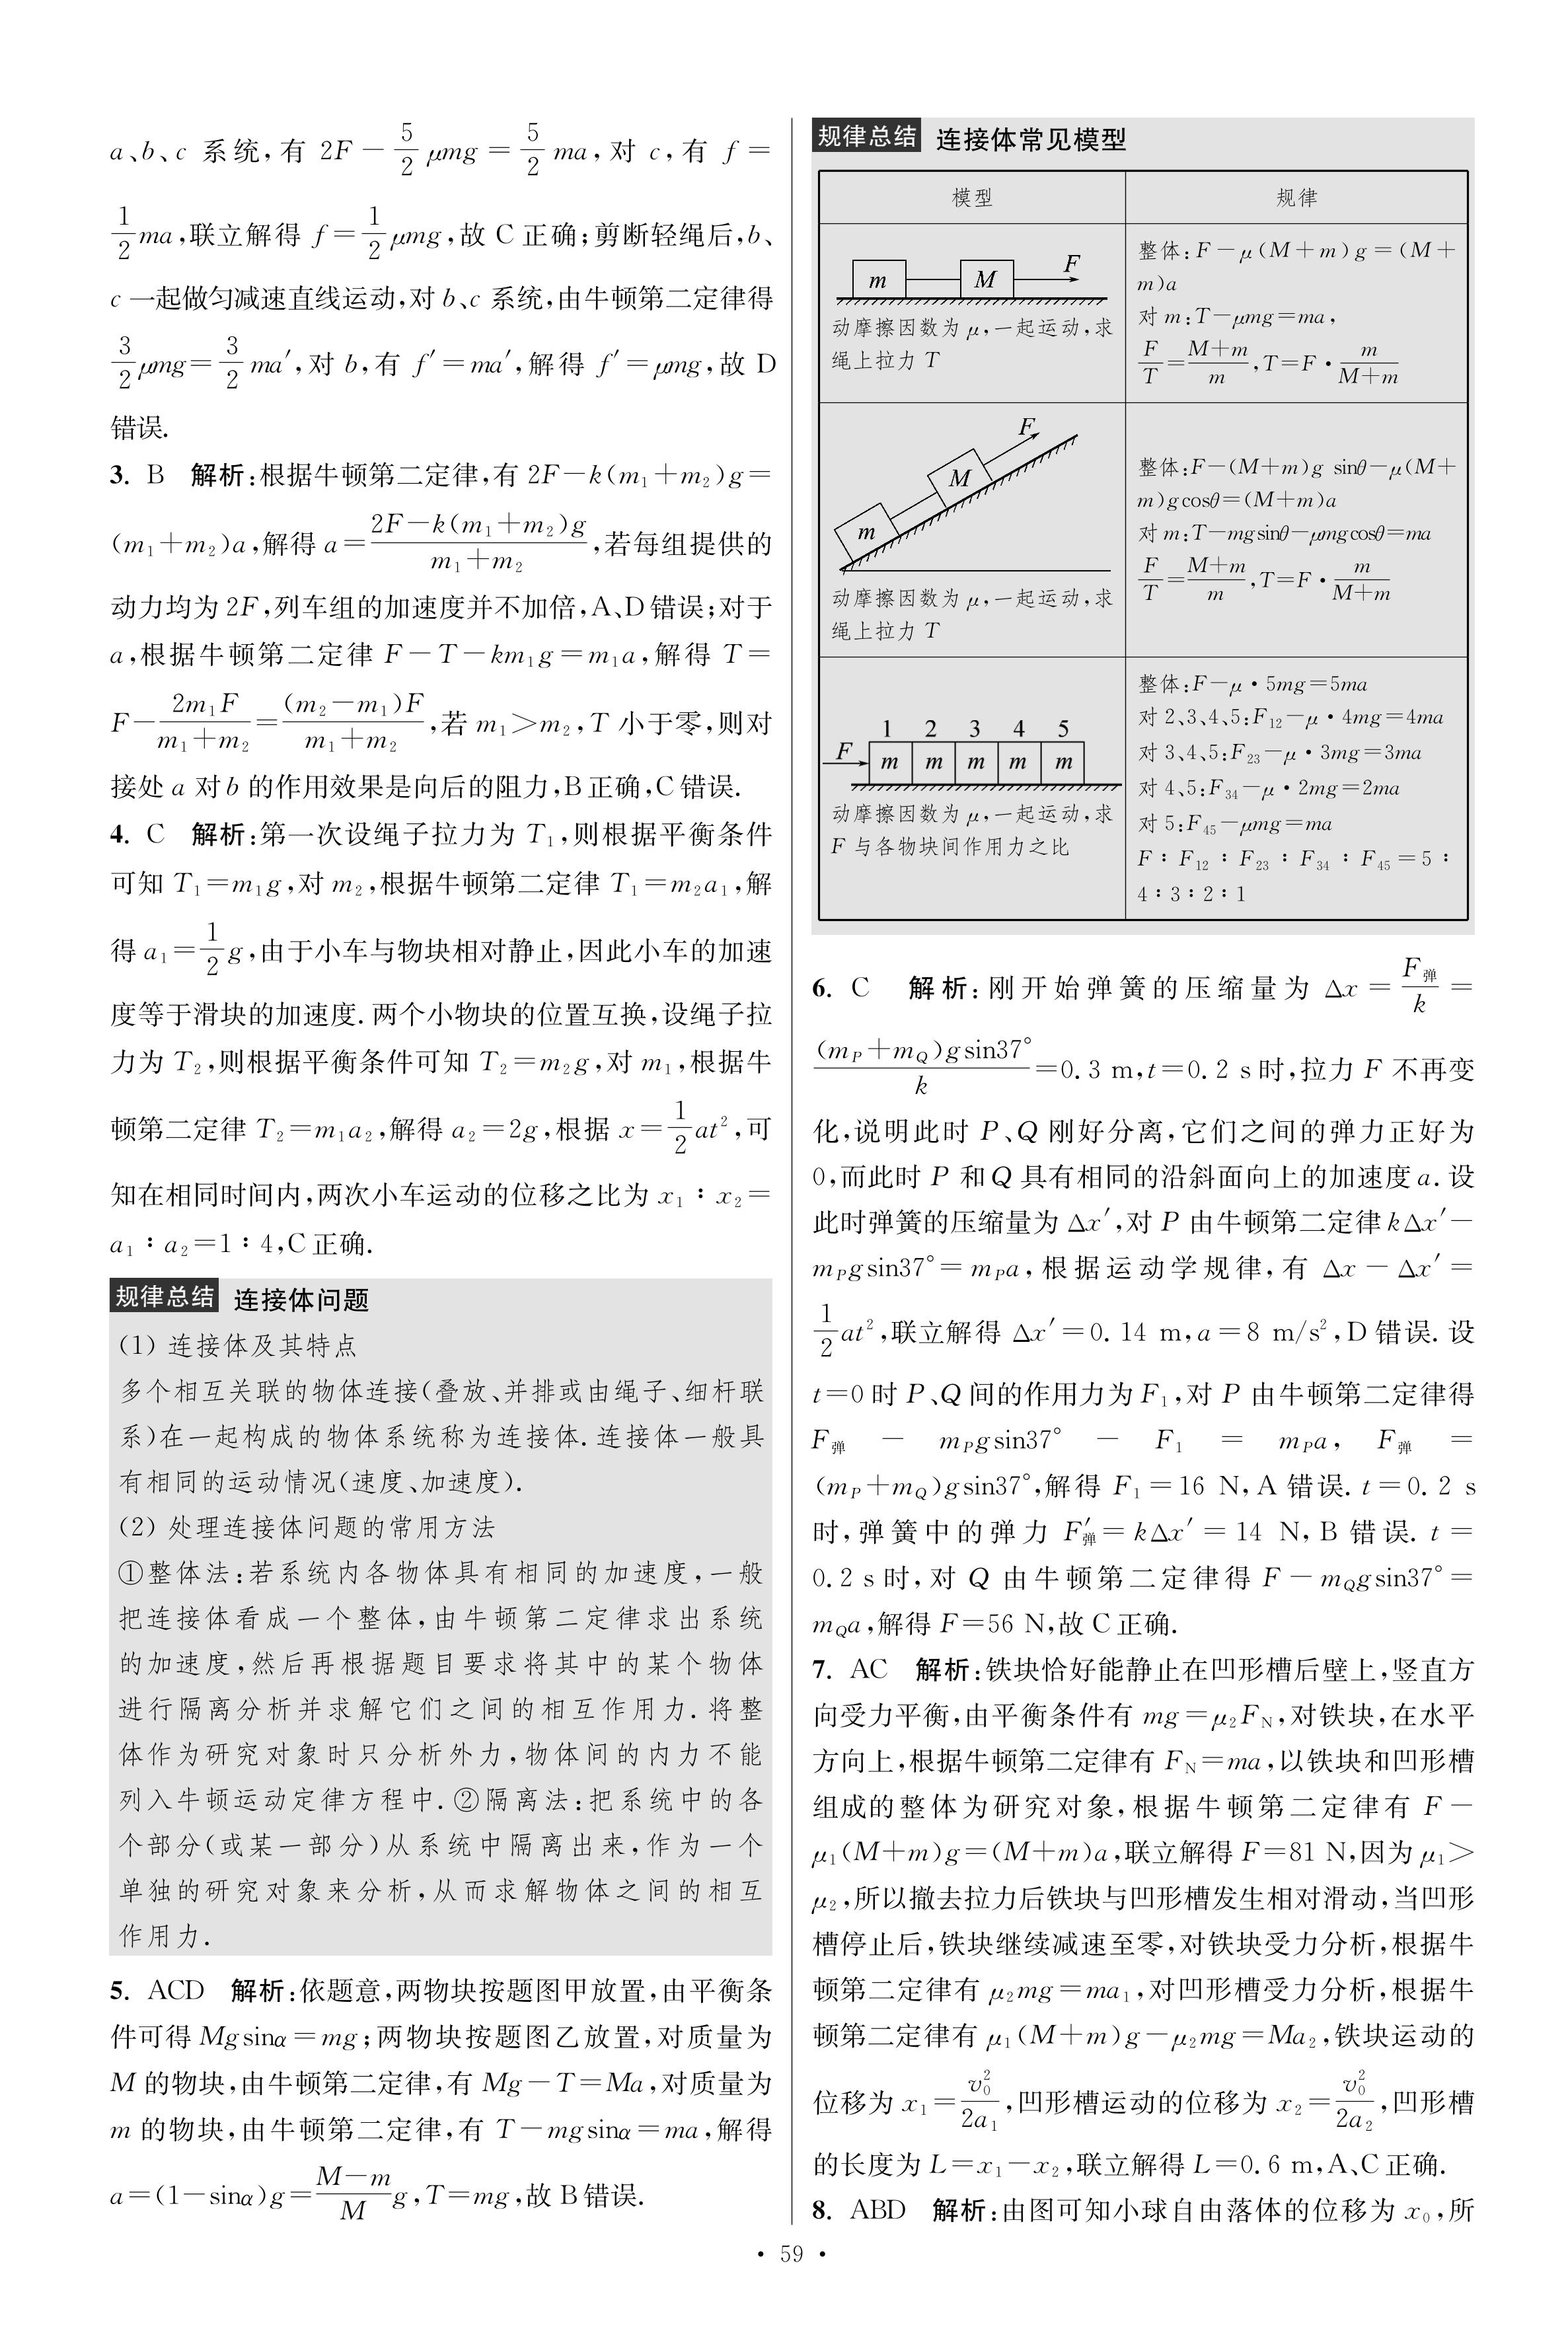 a、b、c 系统,有 2F－5/2 μmg＝5/2 ma,对 c,有 f＝
1/2 ma,联立解得 f＝1/2 μmg,故 C 正确;剪断轻绳后,b、
c 一起做匀减速直线运动,对 b、c 系统,由牛顿第二定律得
3/2 μmg＝3/2 ma′,对 b,有 f′＝ma′,解得 f′＝μmg,故 D
错误.
3. B 解析:根据牛顿第二定律,有 2F－k(m₁＋m₂)g＝
(m₁＋m₂)a,解得 a＝(2F－k(m₁＋m₂)g)/(m₁＋m₂),若每组提供的
动力均为 2F,列车组的加速度并不加倍,A、D 错误;对于
a,根据牛顿第二定律 F－T－km₁g＝m₁a,解得 T＝
F－2m₁F/(m₁＋m₂)＝(m₂－m₁)F/(m₁＋m₂),若 m₁＞m₂,T 小于零,则对
接处 a 对 b 的作用效果是向后的阻力,B 正确,C 错误.
4. C 解析:第一次设绳子拉力为 T₁,则根据平衡条件
可知 T₁＝m₁g,对 m₂,根据牛顿第二定律 T₁＝m₂a₁,解
得 a₁＝1/2 g,由于小车与物块相对静止,因此小车的加速
度等于滑块的加速度.两个小物块的位置互换,设绳子拉
力为 T₂,则根据平衡条件可知 T₂＝m₂g,对 m₁,根据牛
顿第二定律 T₂＝m₁a₂,解得 a₂＝2g,根据 x＝1/2 at²,可
知在相同时间内,两次小车运动的位移之比为 x₁∶x₂＝
a₁∶a₂＝1∶4,C 正确.
规律总结 连接体问题
(1) 连接体及其特点
多个相互关联的物体连接(叠放、并排或由绳子、细杆联
系)在一起构成的物体系统称为连接体.连接体一般具
有相同的运动情况(速度、加速度).
(2) 处理连接体问题的常用方法
①整体法:若系统内各物体具有相同的加速度,一般
把连接体看成一个整体,由牛顿第二定律求出系统
的加速度,然后再根据题目要求将其中的某个物体
进行隔离分析并求解它们之间的相互作用力.将整
体作为研究对象时只分析外力,物体间的内力不能
列入牛顿运动定律方程中.②隔离法:把系统中的各
个部分(或某一部分)从系统中隔离出来,作为一个
单独的研究对象来分析,从而求解物体之间的相互
作用力.
5. ACD 解析:依题意,两物块按题图甲放置,由平衡条
件可得 Mgsinα＝mg;两物块按题图乙放置,对质量为
M 的物块,由牛顿第二定律,有 Mg－T＝Ma,对质量为
m 的物块,由牛顿第二定律,有 T－mgsinα＝ma,解得
a＝(1－sinα)g＝(M－m)/M g,T＝mg,故 B 错误.
规律总结 连接体常见模型
模型 规律
m M F
动摩擦因数为 μ,一起运动,求
绳上拉力 T
整体:F－μ(M＋m)g＝(M＋
m)a
对 m:T－μmg＝ma,
F/T＝(M＋m)/m,T＝F·m/(M＋m)
m M F
动摩擦因数为 μ,一起运动,求
绳上拉力 T
整体:F－(M＋m)g sinθ－μ(M＋
m)gcosθ＝(M＋m)a
对 m:T－mgsinθ－μmgcosθ＝ma
F/T＝(M＋m)/m,T＝F·m/(M＋m)
1 2 3 4 5
F m m m m m
动摩擦因数为 μ,一起运动,求
F 与各物块间作用力之比
整体:F－μ·5mg＝5ma
对 2、3、4、5:F₁₂－μ·4mg＝4ma
对 3、4、5:F₂₃－μ·3mg＝3ma
对 4、5:F₃₄－μ·2mg＝2ma
对 5:F₄₅－μmg＝ma
F∶F₁₂∶F₂₃∶F₃₄∶F₄₅＝5∶
4∶3∶2∶1
6. C 解析:刚开始弹簧的压缩量为 Δx＝F弹/k＝
(m_P＋m_Q)gsin37°/k＝0.3 m,t＝0.2 s 时,拉力 F 不再变
化,说明此时 P、Q 刚好分离,它们之间的弹力正好为
0,而此时 P 和 Q 具有相同的沿斜面向上的加速度 a.设
此时弹簧的压缩量为 Δx′,对 P 由牛顿第二定律 kΔx′－
m_P gsin37°＝m_P a,根据运动学规律,有 Δx－Δx′＝
1/2 at²,联立解得 Δx′＝0.14 m,a＝8 m/s²,D 错误.设
t＝0 时 P、Q 间的作用力为 F₁,对 P 由牛顿第二定律得
F弹－m_P gsin37°－F₁＝m_P a,F弹＝
(m_P＋m_Q)gsin37°,解得 F₁＝16 N,A 错误.t＝0.2 s
时,弹簧中的弹力 F′弹＝kΔx′＝14 N,B 错误.t＝
0.2 s 时,对 Q 由牛顿第二定律得 F－m_Q gsin37°＝
m_Q a,解得 F＝56 N,故 C 正确.
7. AC 解析:铁块恰好能静止在凹形槽后壁上,竖直方
向受力平衡,由平衡条件有 mg＝μ₂F_N,对铁块,在水平
方向上,根据牛顿第二定律有 F_N＝ma,以铁块和凹形槽
组成的整体为研究对象,根据牛顿第二定律有 F－
μ₁(M＋m)g＝(M＋m)a,联立解得 F＝81 N,因为 μ₁＞
μ₂,所以撤去拉力后铁块与凹形槽发生相对滑动,当凹形
槽停止后,铁块继续减速至零,对铁块受力分析,根据牛
顿第二定律有 μ₂mg＝ma₁,对凹形槽受力分析,根据牛
顿第二定律有 μ₁(M＋m)g－μ₂mg＝Ma₂,铁块运动的
位移为 x₁＝v₀²/2a₁,凹形槽运动的位移为 x₂＝v₀²/2a₂,凹形槽
的长度为 L＝x₁－x₂,联立解得 L＝0.6 m,A、C 正确.
8. ABD 解析:由图可知小球自由落体的位移为 x₀,所
· 59 ·